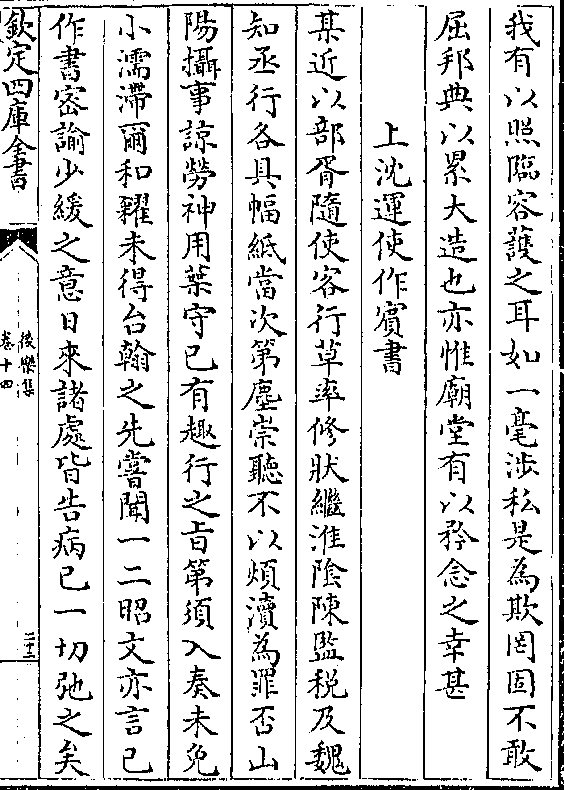 我有以照臨容䕶之耳如一毫涉私是為欺罔固不敢
屈邦典以累大造也亦惟廟堂有以矜念之幸甚
上沈運使作賓書
某近以部胥隨使客行草率修狀繼淮隂陳監税及魏
知丞行各具幅紙當次第塵崇聽不以煩瀆為罪否山
陽攝事諒勞神用葉守已有趣行之㫖第須入奏未免
小濡滯爾和糴未得台翰之先嘗聞一二昭文亦言已
作書宻諭少緩之意日來諸處皆告病已一切弛之矣
欽定四庫全書
後樂集
卷十四
二十三